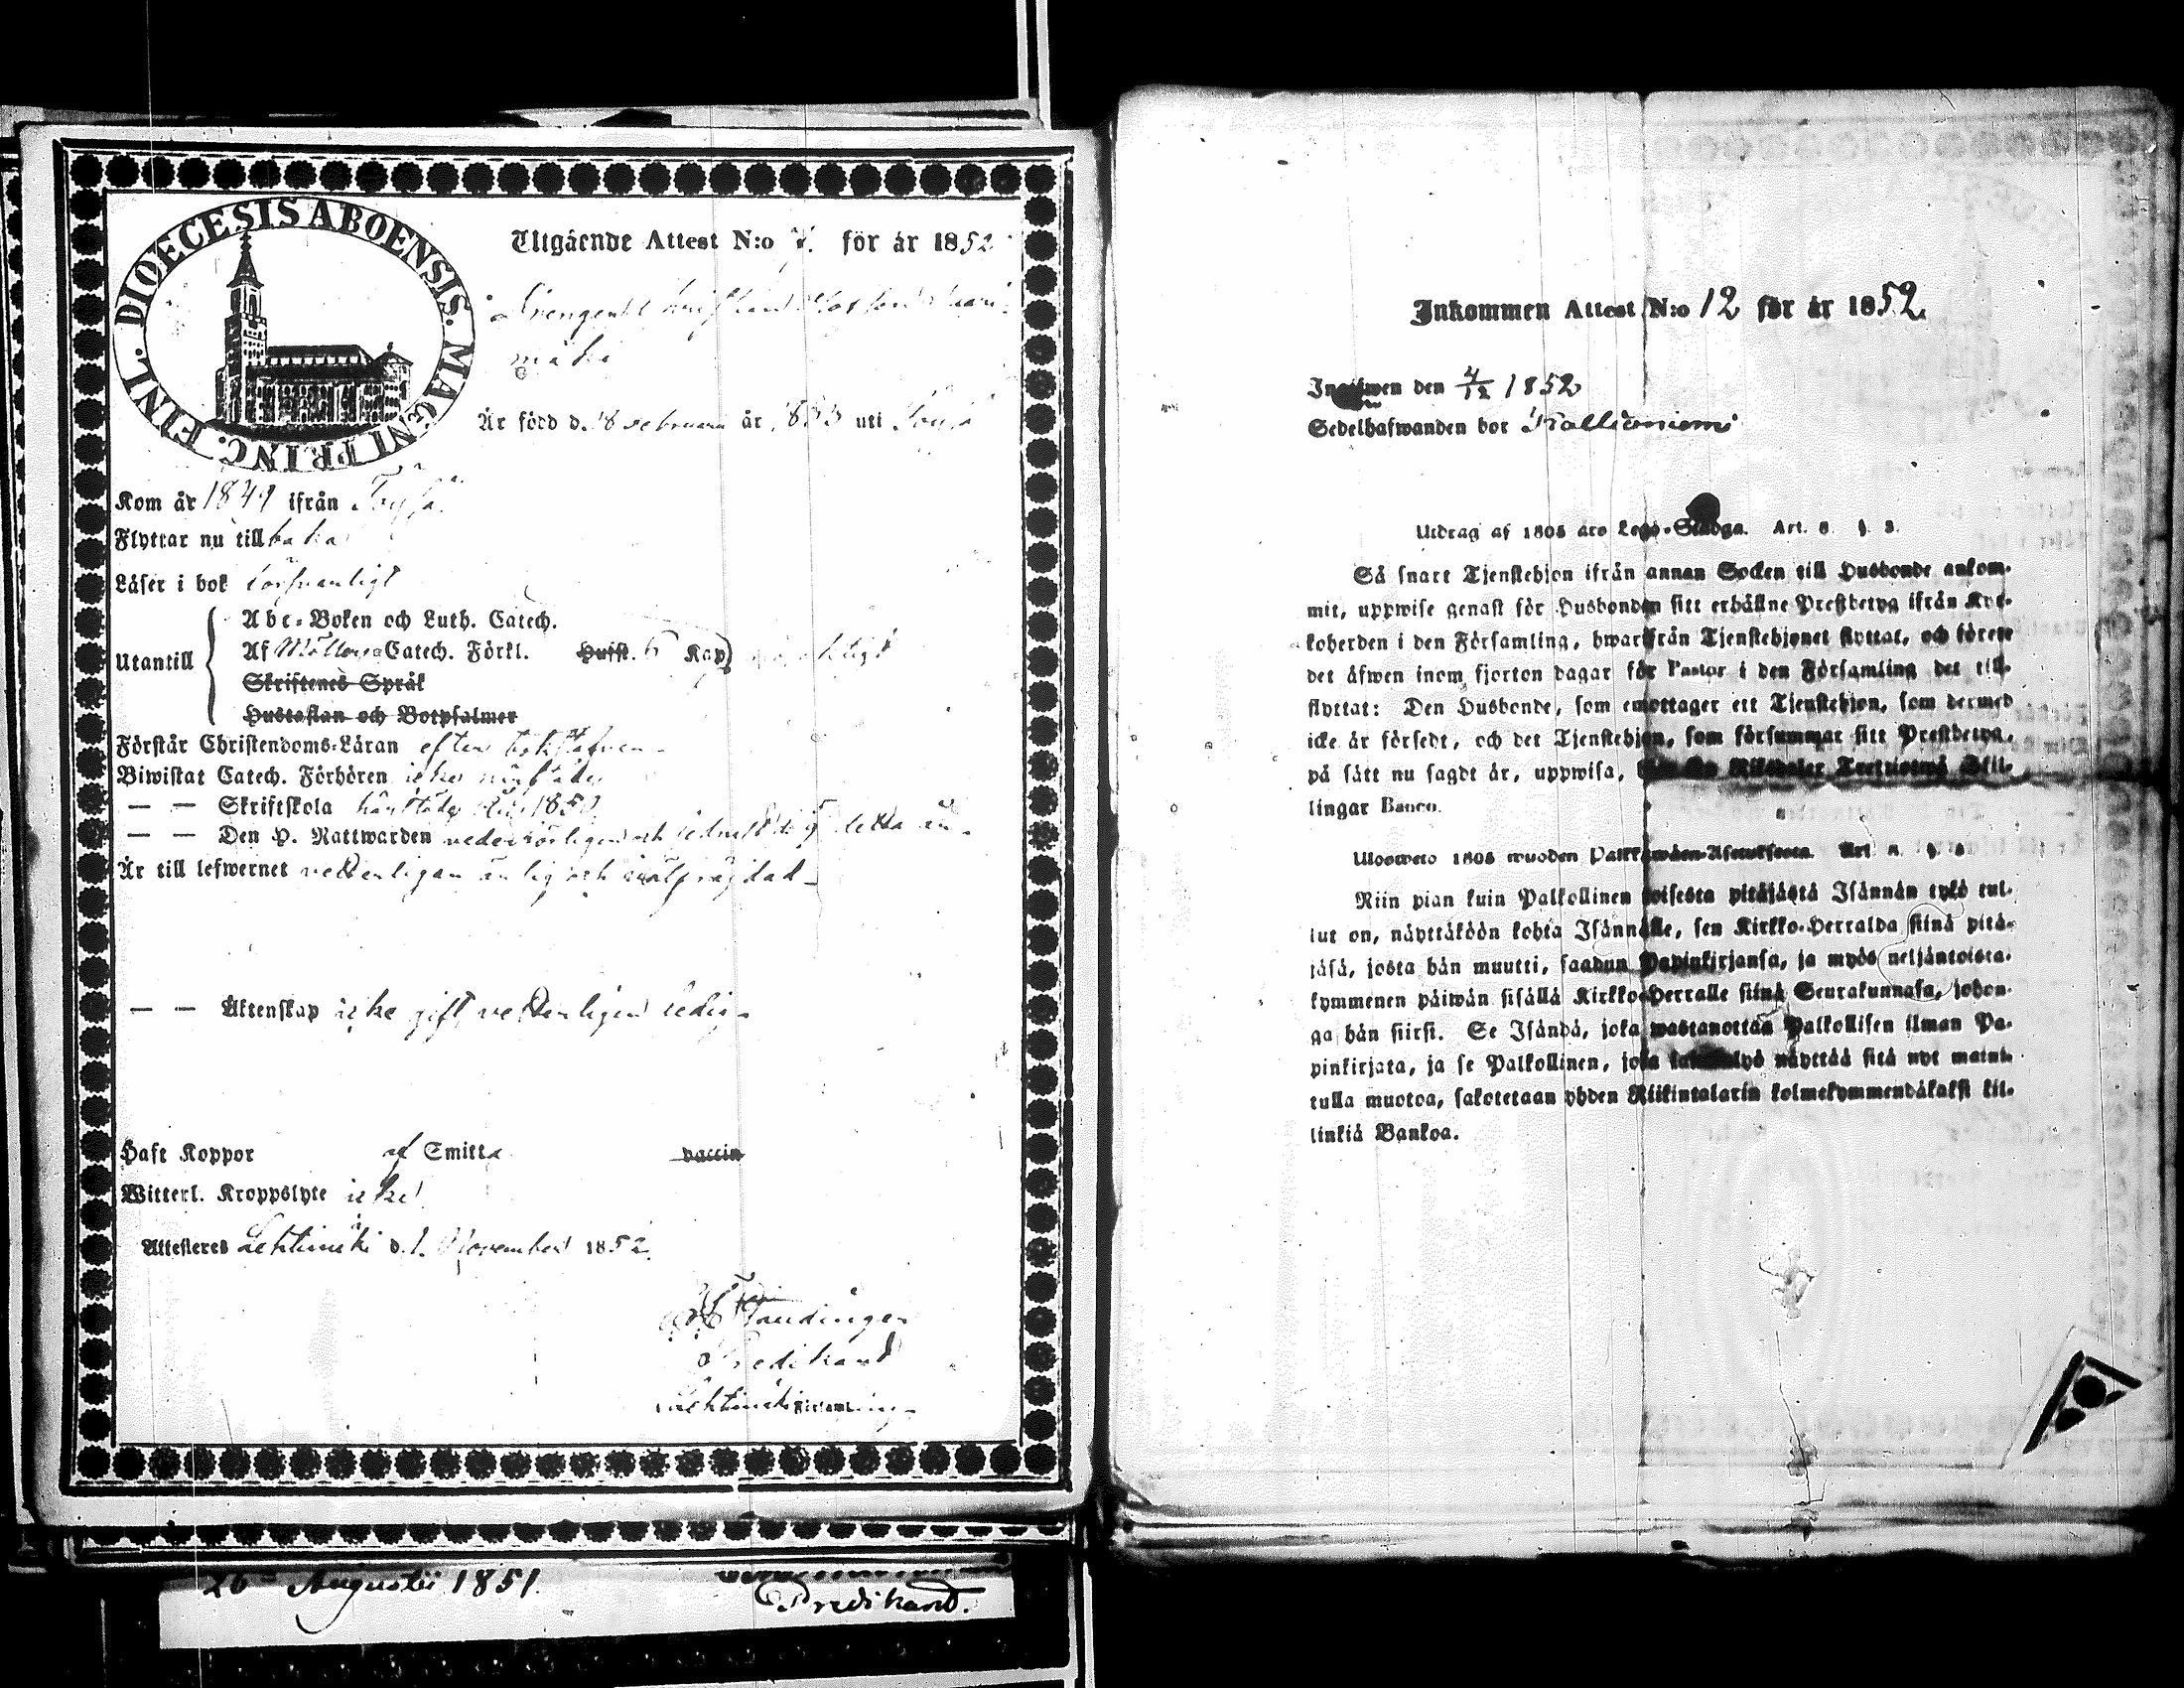 DIOECESIS ABOENSIS. MAGNI PRINC. FINL.
Utgående Attest N:o 7. för år 1852
Drengen
mäki
Är född d. 18 Februari år 1833 uti
Kom år 1849 ifrån Töysä.
Flyttar nu tillbaka
Läser i bok försvarligt
Abc-Boken och Luth. Catech.
Utantill
Af Möllers Catech. Förkl. Husst. 6 Kap
Skriftenes Språk
Hustaflan och Botpsalmer
Förstår Christendoms-Läran efter bokstafven
Biwistat Catech. Förhören icke härstädes
— — Skriftskola härstädes 1850
— — Den H. Nattwarden vederbörligen och sednast d. detta år.
Är till lefwernet vetterligen ärlig och välfrägdad
— — Äktenskap icke gift, vetterligen ledig
Haft Koppor af Smitta vaccin
Witterl. Kroppslyte icke
Attesteres Lehtimäki d. 1. November 1852.
Predikant
Lehtimäki
26 Augusti 1851.
Predikant.
Inkommen Attest N:o 12 för år 1852.
Ingifwen den 4/12 1852
Sedelhafwanden bor Kallioniemi
Utdrag af 1805 års Lego-Stadga. Art. 8. §. 3.
Så snart Tjenstehjon ifrån annan Socken till Husbonde ankom-
mit, uppwise genast för Husbonden sitt erhållne Prestbetyg ifrån Kyr-
koherden i den Församling, hwarifrån Tjenstehjonet flyttat, och förete
det äfwen inom fjorton dagar för Pastor i den Församling det till-
flyttat: Den Husbonde, som emottager ett Tjenstehjon, som dermed
icke är försedt, och det Tjenstehjon, som försummar sitt Prestbetyg,
på sätt nu sagdt är, uppwisa, Riksdaler Trettiotwå Skil-
lingar Banco.
Uloswero 1805 wuoden Palkkawäen-Asetuksesta. Art. 8. §. 3.
Niin pian kuin Palkollinen toisesta pitäjästä Isännän tykö tul-
lut on, näyttäköön kohta Isännälle, sen Kirkko-Herralda siinä pitä-
jäsä, josta hän muutti, saadun Papinkirjansa, ja myös neljäntoista-
kymmenen päiwän sisällä Kirkko-Herralle siinä Seurakunnasa, johon-
ga hän siirsi. Se Isändä, joka wastanottaa Palkollisen ilman Pa-
pinkirjata, ja se Palkollinen, joka näyttää sitä nyt maini-
tulla muotoa, sakotetaan yhden Riikintalarin kolmekymmendäkaksi kil-
linkiä Bankoa.